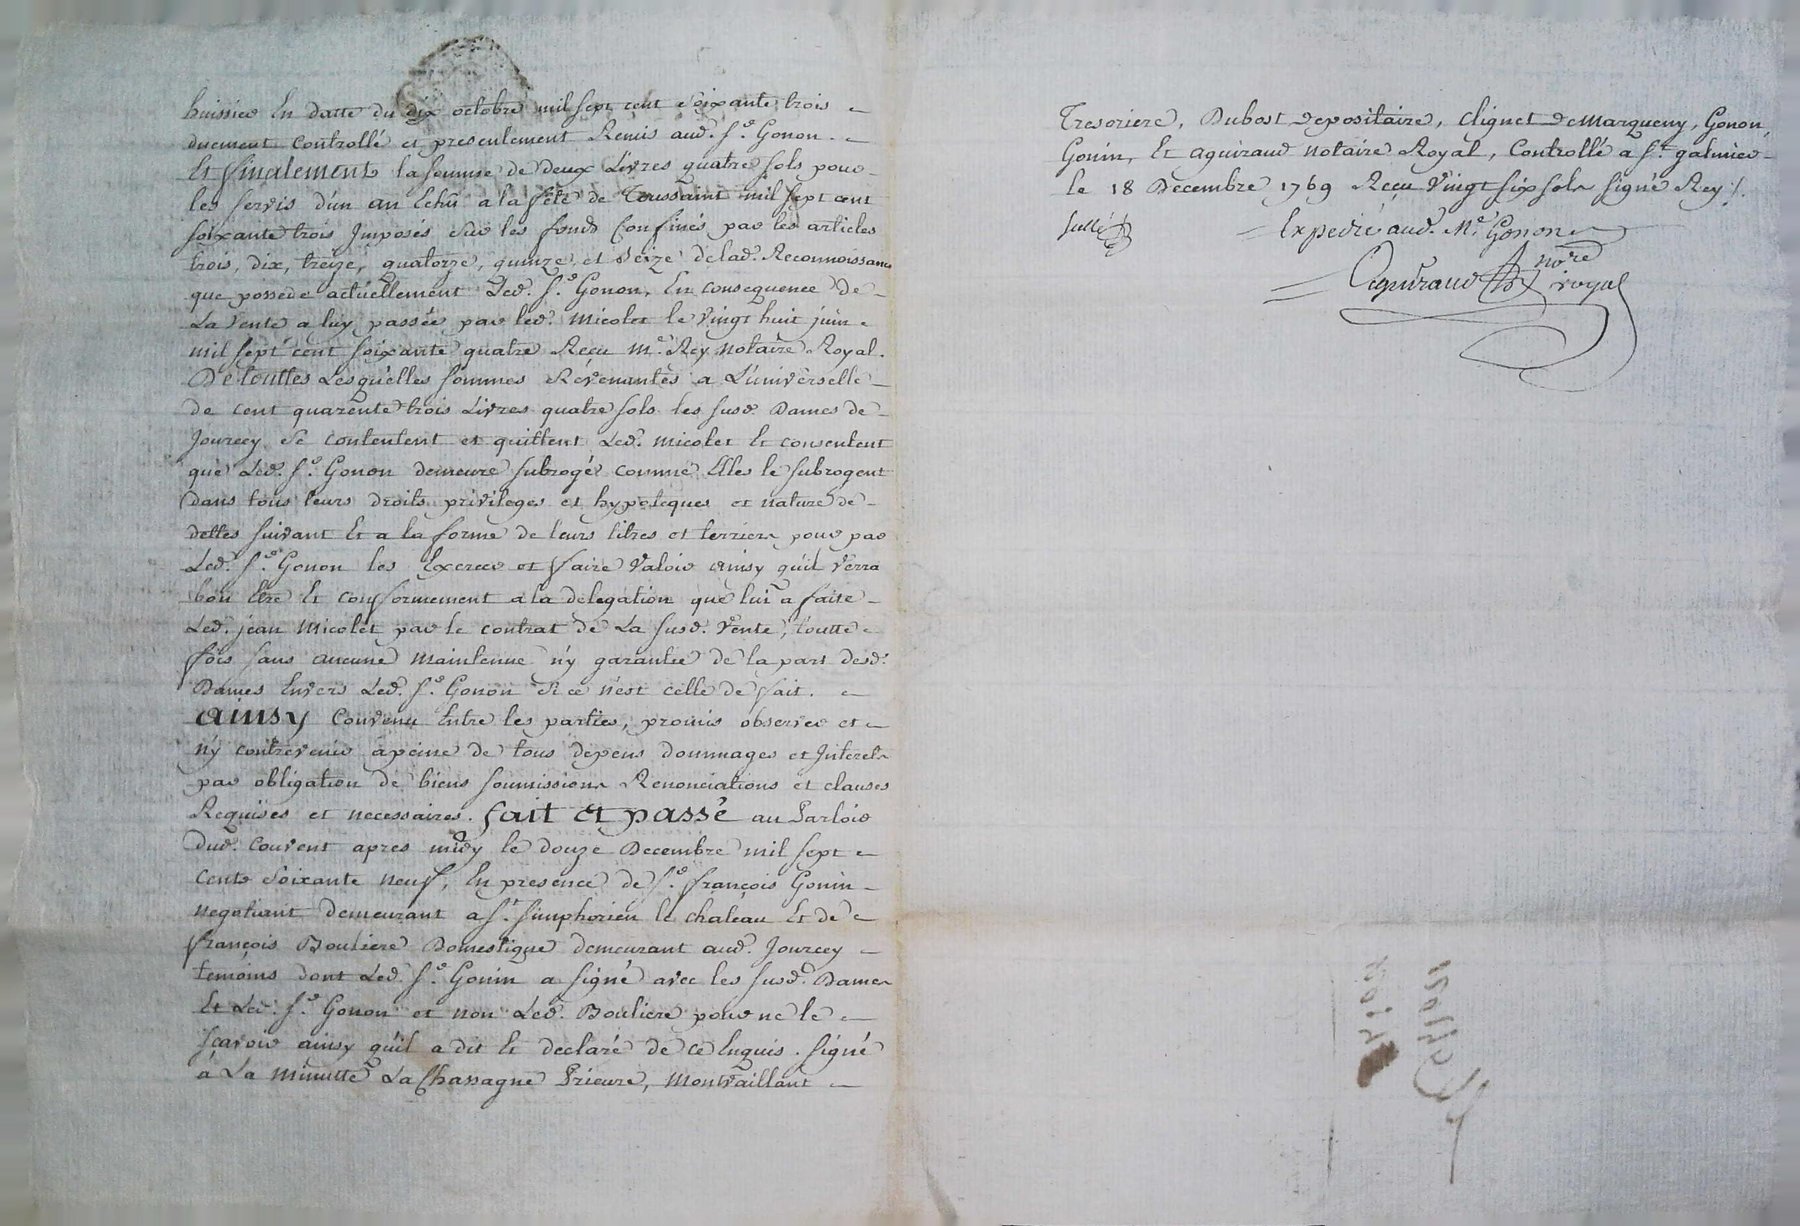 huissier En datte du dix octobre mil sept cent soixante trois
duement controllé et presentement Remis aud. Sr. Gonon.
Et finalement la somme de deux Livres quatre sols pour
les servis d'un an Echû a la fête de Toussaint mil sept cent
soixante trois Imposés sur les fonds Confinés par les articles
trois, dix, treize, quatorze, quinze, et seize de lad. Reconnoissance
que possede actuellement Led. Sr. Gonon, En consequence de
La Vente a luy passée par led. Micolet le Vingt huit juin
mil sept cent soixante quatre Reçu Me. Rey Notaire Royal.
De touttes Lesquelles sommes Révenantes a L'universelle
de cent quarente trois Livres quatre sols les susd. Dames de
Jourcey se contentent et quittent Led. Micolet Et consentent
que Led. Sr. Gonon demeure subrogé comme Elles le subrogent
dans tous leurs droits privileges et hypoteques et nature de
dettes suivant Et a la forme de leurs titres et terriers pour par
Led. Sr. Gonon les Exercer et faire Valoir ainsy qu'il Verra
bon Etre Et conformement a la delegation que lui a faite
Led. jean Micolet par le contrat de La susd. Vente, toutte
fois sans aucune Maintenue n'y garantie de la part desd.
Dames Envers Led. Sr. Gonon si ce n'est celle de fait.
ainsy Convenu Entre les parties, promis observer et
n'y contrevenir apeine de tous depens dommages et Interets
par obligation de biens soumissions Renonciations et clauses
Requises et necessaires. fait et passé au Parloir
dud. Couvent apres midy le douze Decembre mil sept
cents soixante neuf, En presence de Sr. françois Gonin
negotiant demeurant a St. Simphorien le chateau Et de
françois Bouliere Domestique demeurant aud. Jourcey
temoins dont Led. Sr. Gonin a signé avec les susd. Dames
Et Led. Sr. Gonon et non Led. Bouliere pour ne le
sçavoir ainsy qu'il a dit Et declaré de ce Enquis. signé
à La Minutte La Chassagne Prieure, Montvaillant
Tresoriere, Dubost depositaire, clignet de Marqueny, Gonon,
Gonin, Et aguiraud notaire Royal, Controllé a St. galmier
le 18 Decembre 1769 Reçu Vingt six sols signé Rey ./.
Expedié aud. Me. Gonon
Aguiraud nore
royal